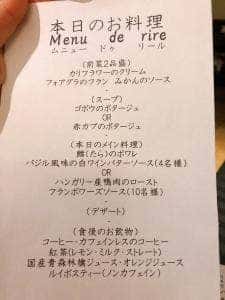 本日のお料理
Menu de rire
ムニュー ドゥ リール
(前菜2品盛)
カリフラワーのクリーム
フォアグラのフラン みかんのソース
-
(スープ)
ゴボウのポタージュ
OR
赤カブのポタージュ
-
(本日のメイン料理)
鱈(たら)のポワレ
バジル風味の白ワインバターソース(4名様)
OR
ハンガリー産鴨肉のロースト
フランボワーズソース(10名様)
-
(デザート)
-
(食後のお飲物)
コーヒー・カフェインレスのコーヒー
紅茶(レモン・ミルク・ストレート)
国産青森林檎ジュース・オレンジジュース
ルイボスティー(ノンカフェイン)